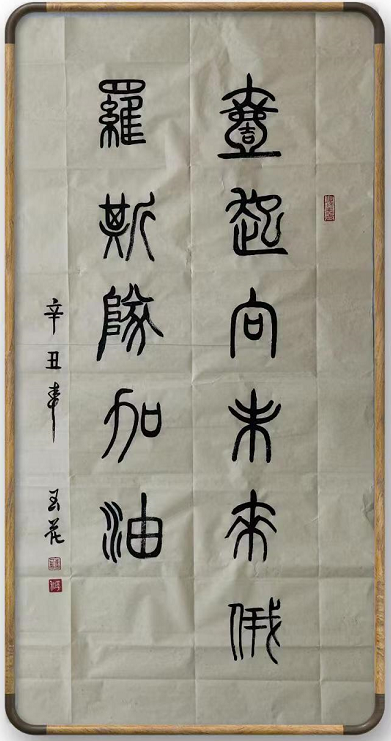 壹起向未來俄
羅斯隊加油
辛丑年 玉花